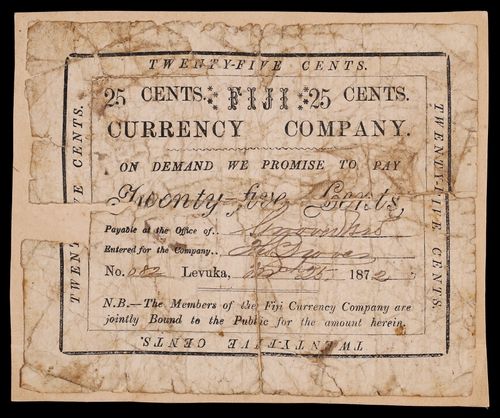 TWENTY-FIVE CENTS.
25 CENTS. FIJI 25 CENTS.
CURRENCY COMPANY.
ON DEMAND WE PROMISE TO PAY
Twenty-five Cents
Payable at the Office of
Entered for the Company
No. 082 Levuka, 25 1872
N.B.—The Members of the Fiji Currency Company are
jointly Bound to the Public for the amount herein.
TWENTY-FIVE CENTS.
TWENTY-FIVE CENTS.
TWENTY-FIVE CENTS.